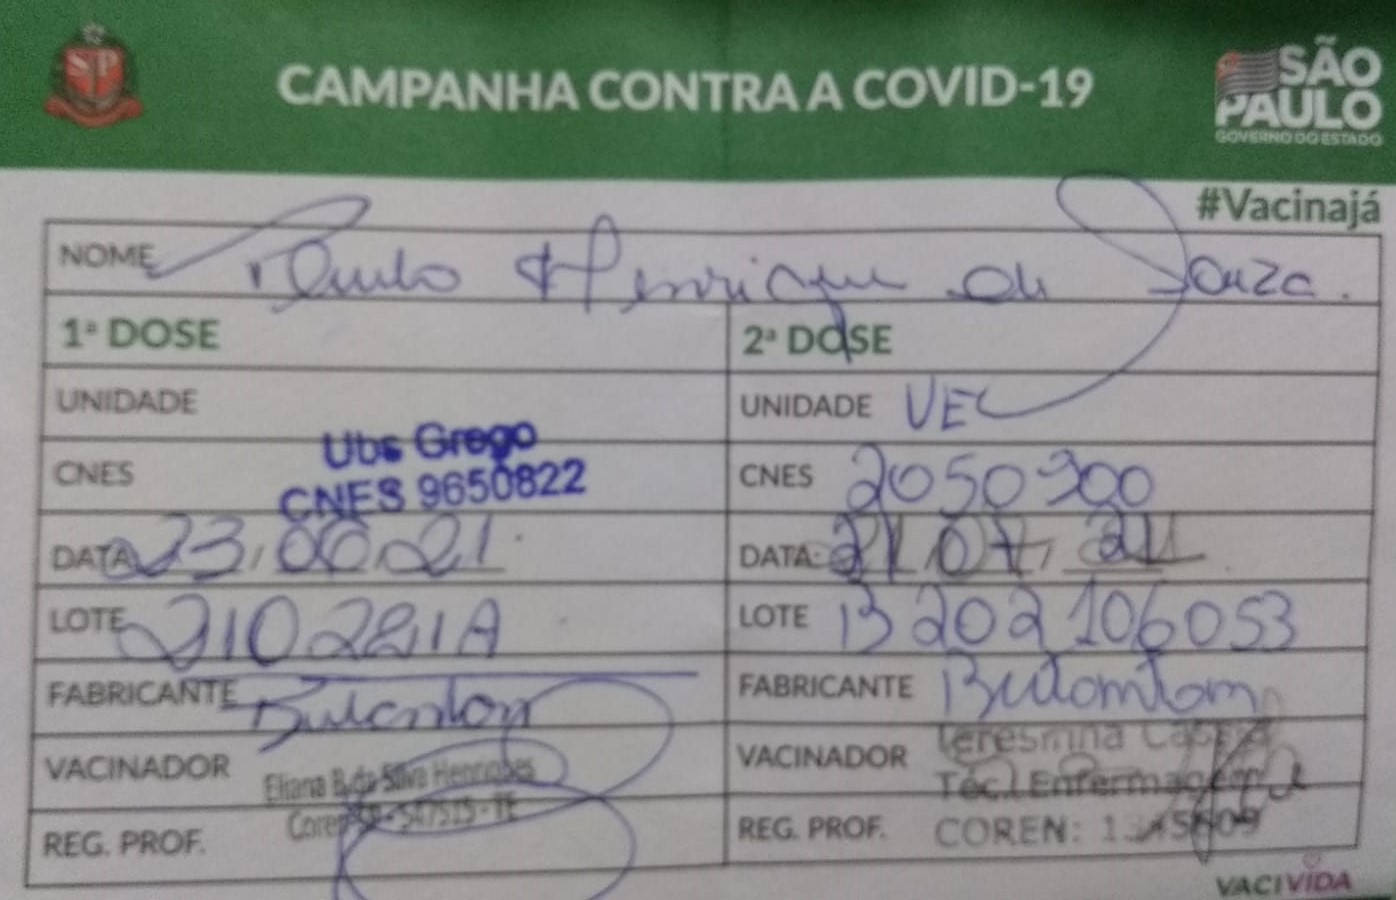 SP
CAMPANHA CONTRA A COVID-19
SÃO
PAULO
GOVERNO DO ESTADO
#Vacinajá
NOME Paulo Henrique de Souza.
1ª DOSE
2ª DOSE
UNIDADE
UNIDADE VE
Ubs Grego
CNES
CNES 9650822
CNES 2050900
DATA 23/06/21
DATA 21/07/21
LOTE
LOTE B202106053
FABRICANTE Butantan
FABRICANTE Butantan
VACINADOR Eliana B. da Silva Henriques
VACINADOR Teresinha
Téc. Enfermagem
Coren 547515 - TE
REG. PROF.
REG. PROF. COREN:
VACIVIDA